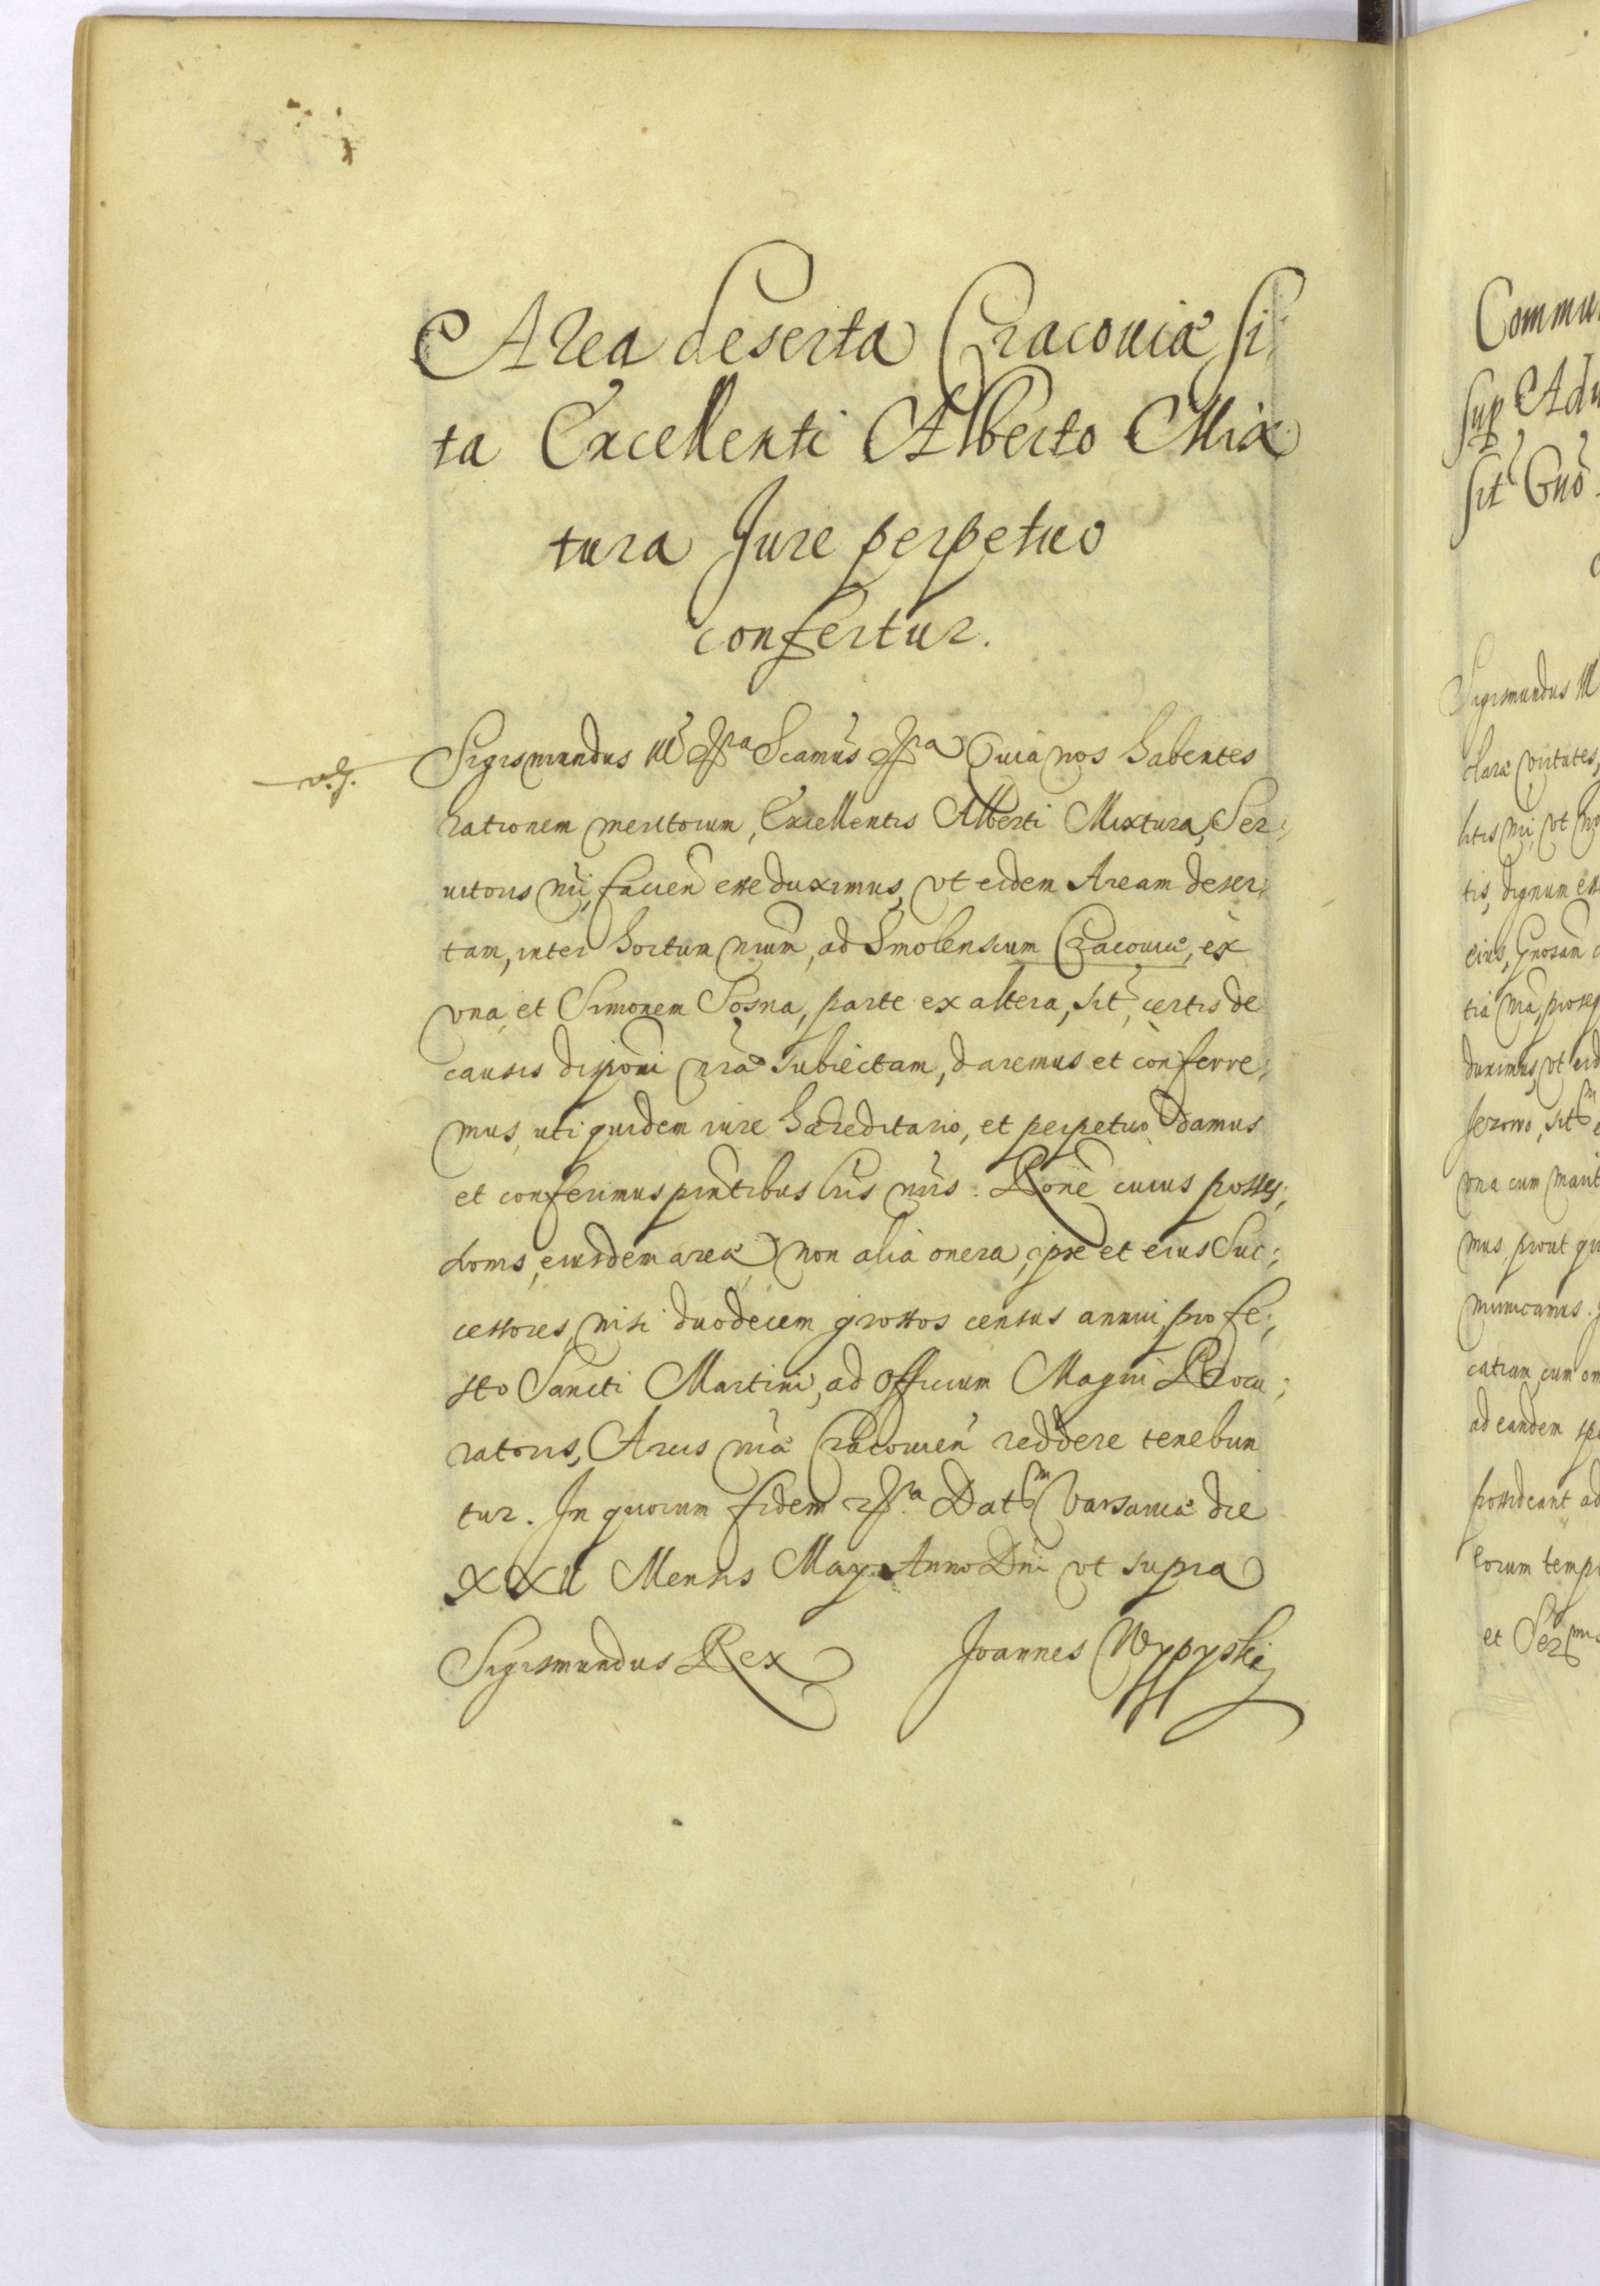 Area deserta Cracouiæ si:
ta Excellenti Alberto Mix
tura Jure perpetuo
confertur.
Sigismundus III etc̃ra Scamus etc̃ra Quia nos habentes
rationem meritorum, Excellentis Alberti Mixtura, Ser:
uitoris nri, facien̄ esse duximus, vt eidem Aream deser:
tam, inter hortum nrum, ad Smolenscum Cracouiæ, ex
vna, et Simonem Sosna, parte ex altera, sit, certis de
causis disponi nrã subiectam, daremus et conferre:
mus, uti quidem iure hæreditario, et perpetuo damus
et conferimus pntibus lris nris. Rone cuius posses:
sionis, eiusdem areæ non alia onera, ipse et eius Suc:
cessores, nisi duodecem grossos census annui, pro fe:
sto Sancti Martini, ad Officium Magni Procu:
ratoris, Arcis nræ Cracouien̄ reddere tenebun
tur. In quorum fidem etc̃ra Dat̃m Varsauiæ die
XXII Mensis May Anno Dni vt supra
Sigismundus Rex Joannes Wypyski
v.g.
Commu
sup Adu
sit Gnõ
Sigismundus III
claræ virtutes,
litis nri, vt
tis, dignum ess
eius, Gnosam
tia nrã, proseq
duximus, vt eid
vna cum marit
mus prout qu
municamus.
catiam, cum om
ad eandem
possideant, ad
eorum temp
et Ser